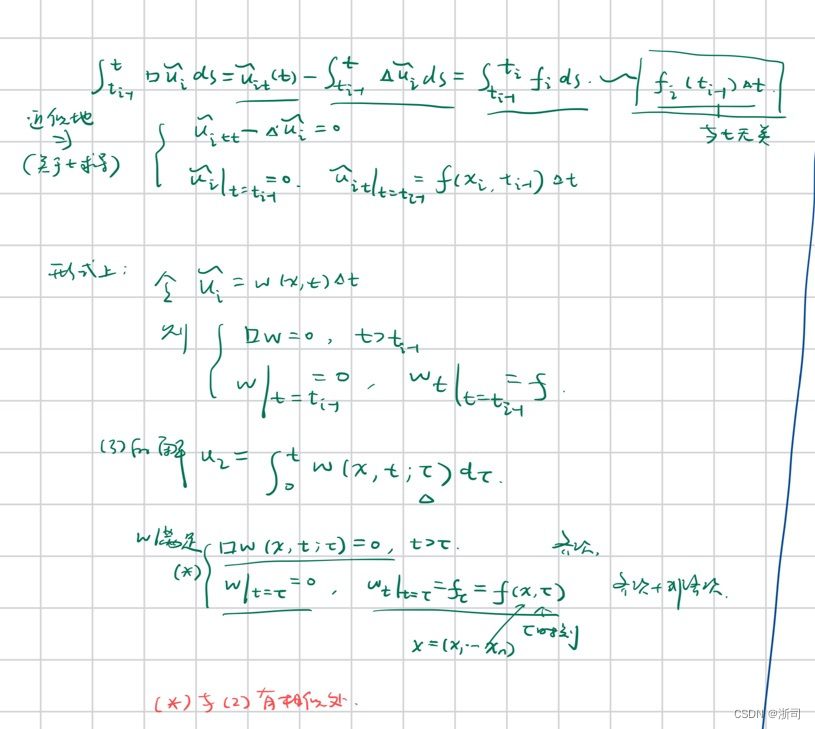 ∫_{t_{i-1}}^{t} □ũ_i ds = ũ_{it}(t) - ∫_{t_{i-1}}^{t} Δũ_i ds = ∫_{t_{i-1}}^{t_i} f_i ds. ~ f_i(t_{i-1})Δt.
近似地 ⇒ (关于t求导)
与t无关
ũ_{itt} - Δũ_i = 0
ũ_i|_{t=t_{i-1}} = 0. ũ_{it}|_{t=t_{i-1}} = f(x_i, t_{i-1}) Δt
形式上: 令 ũ_i = w(x,t)Δt
则 { □w = 0, t>t_{i-1}
w|_{t=t_{i-1}} = 0, w_t|_{t=t_{i-1}} = f.
(3)的解 u_2 = ∫_0^t w(x,t;τ)dτ.
Δ
w满足 (*) { □w(x,t;τ) = 0, t>τ. 齐次,
w|_{t=τ} = 0, w_t|_{t=τ} = f_τ = f(x,τ) 齐次+非齐次.
x=(x_1⋯x_n) τ时刻
(*)与(2)有相似处.
CSDN @浙司